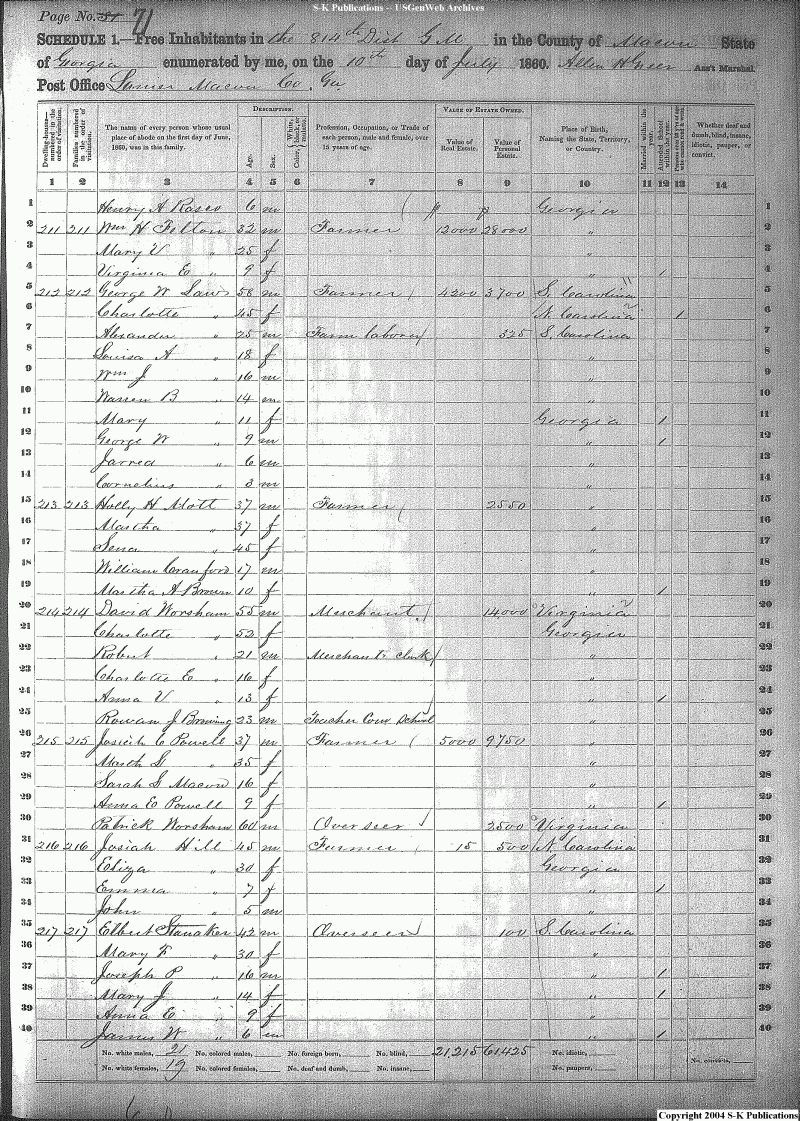 S-K Publications -- USGenWeb Archives
Page No. 71
SCHEDULE 1.—Free Inhabitants in the 814th Dist G M in the County of Macon State
of Georgia enumerated by me, on the 10th day of July 1860. Ass't Marshal.
Post Office Lanier Macon Co. Ga
DESCRIPTION. VALUE OF ESTATE OWNED.
Dwelling-houses—numbered in the order of visitation. Families numbered in the order of visitation. The name of every person whose usual place of abode on the first day of June, 1860, was in this family. Age. Sex. Color, {White, black, or mulatto. Profession, Occupation, or Trade of each person, male and female, over 15 years of age. Value of Real Estate. Value of Personal Estate. Place of Birth, Naming the State, Territory, or Country. Married within the year. Attended School within the year. Persons over 20 years of age who cannot read & write. Whether deaf and dumb, blind, insane, idiotic, pauper, or convict.
1 2 3 4 5 6 7 8 9 10 11 12 13 14
1 Henry A Rasco 6 m $ $ Georgia 1
2 211 211 Wm H Felton 32 m Farmer 12000 28000 " 2
3 Mary V " 25 f " 3
4 Virginia E " 9 f " / 4
5 212 212 George W Laws 58 m Farmer 4200 3700 S. Carolina 5
6 Charlotte " 45 f N. Carolina 1 6
7 Alexander " 25 m Farm laborer 325 S. Carolina 7
8 Louisa A " 18 f " 8
9 Wm J " 16 m " 9
10 Warren B " 14 m " 10
11 Mary " 11 f Georgia / 11
12 George W " 9 m " / 12
13 Jarred " 6 m " 13
14 Cornelius " 3 m " 14
15 213 213 Holly H Mott 37 m Farmer 2550 " 15
16 Martha " 37 f " 16
17 Sena " 45 f " 17
18 William Cranford 17 m " 18
19 Martha A Brown 10 f " / 19
20 214 214 David Worsham 55 m Merchant 14,000 Virginia 20
21 Charlotte " 52 f Georgia 21
22 Robert " 21 m Merchants Clerk " 22
23 Charlotte E " 16 f " 23
24 Anna V " 13 f " / 24
25 Rowan J Browning 23 m Teacher Com School " 25
26 215 215 Josiah C Powell 37 m Farmer 5000 9750 " 26
27 Marth " 35 f " 27
28 Sarah Macon 16 f " 28
29 Anna E Powell 9 f " / 29
30 Patrick Worsham 60 m Overseer 2500 Virginia 30
31 216 216 Josiah Hill 45 m Farmer 15 500 N. Carolina 31
32 Eliza " 30 f Georgia 32
33 Emma " 7 f " / 33
34 John " 5 m " 34
35 217 217 Elbert 42 m Overseer 100 S. Carolina 35
36 Mary F " 30 f " 36
37 Joseph P " 16 m " / 37
38 Mary J " 14 f " / 38
39 Anna E " 9 f " 39
40 James W " 6 m " / 40
No. white males, 21 No. colored males, No. foreign born, No. blind, 21,215 61425 No. idiotic, No. convicts,
No. white females, 19 No. colored females, No. deaf and dumb, No. insane, No. paupers,
Copyright 2004 S-K Publications